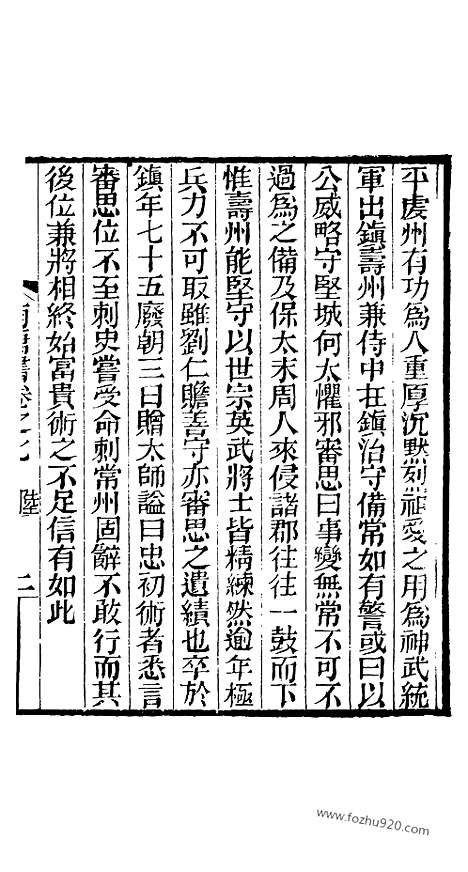 平虔州有功為人重厚沉默烈祖愛之用為神武統
軍出鎮壽州兼侍中在鎮治守備常如有警或曰以
公威略守堅城何太懼邪審思曰事變無常不可不
過為之備及保太末周人來侵諸郡往往一鼓而下
惟壽州能堅守以世宗英武將士皆精練然逾年極
兵力不可取雖劉仁贍善守亦審思之遺績也卒於
鎮年七十五廢朝三日贈太師謚曰忠初術者悉言
審思位不至刺史嘗受命刺常州固辭不敢行而其
後位兼將相終始富貴術之不足信有如此
南唐書卷之九 陸 二
www.fozhu920.com